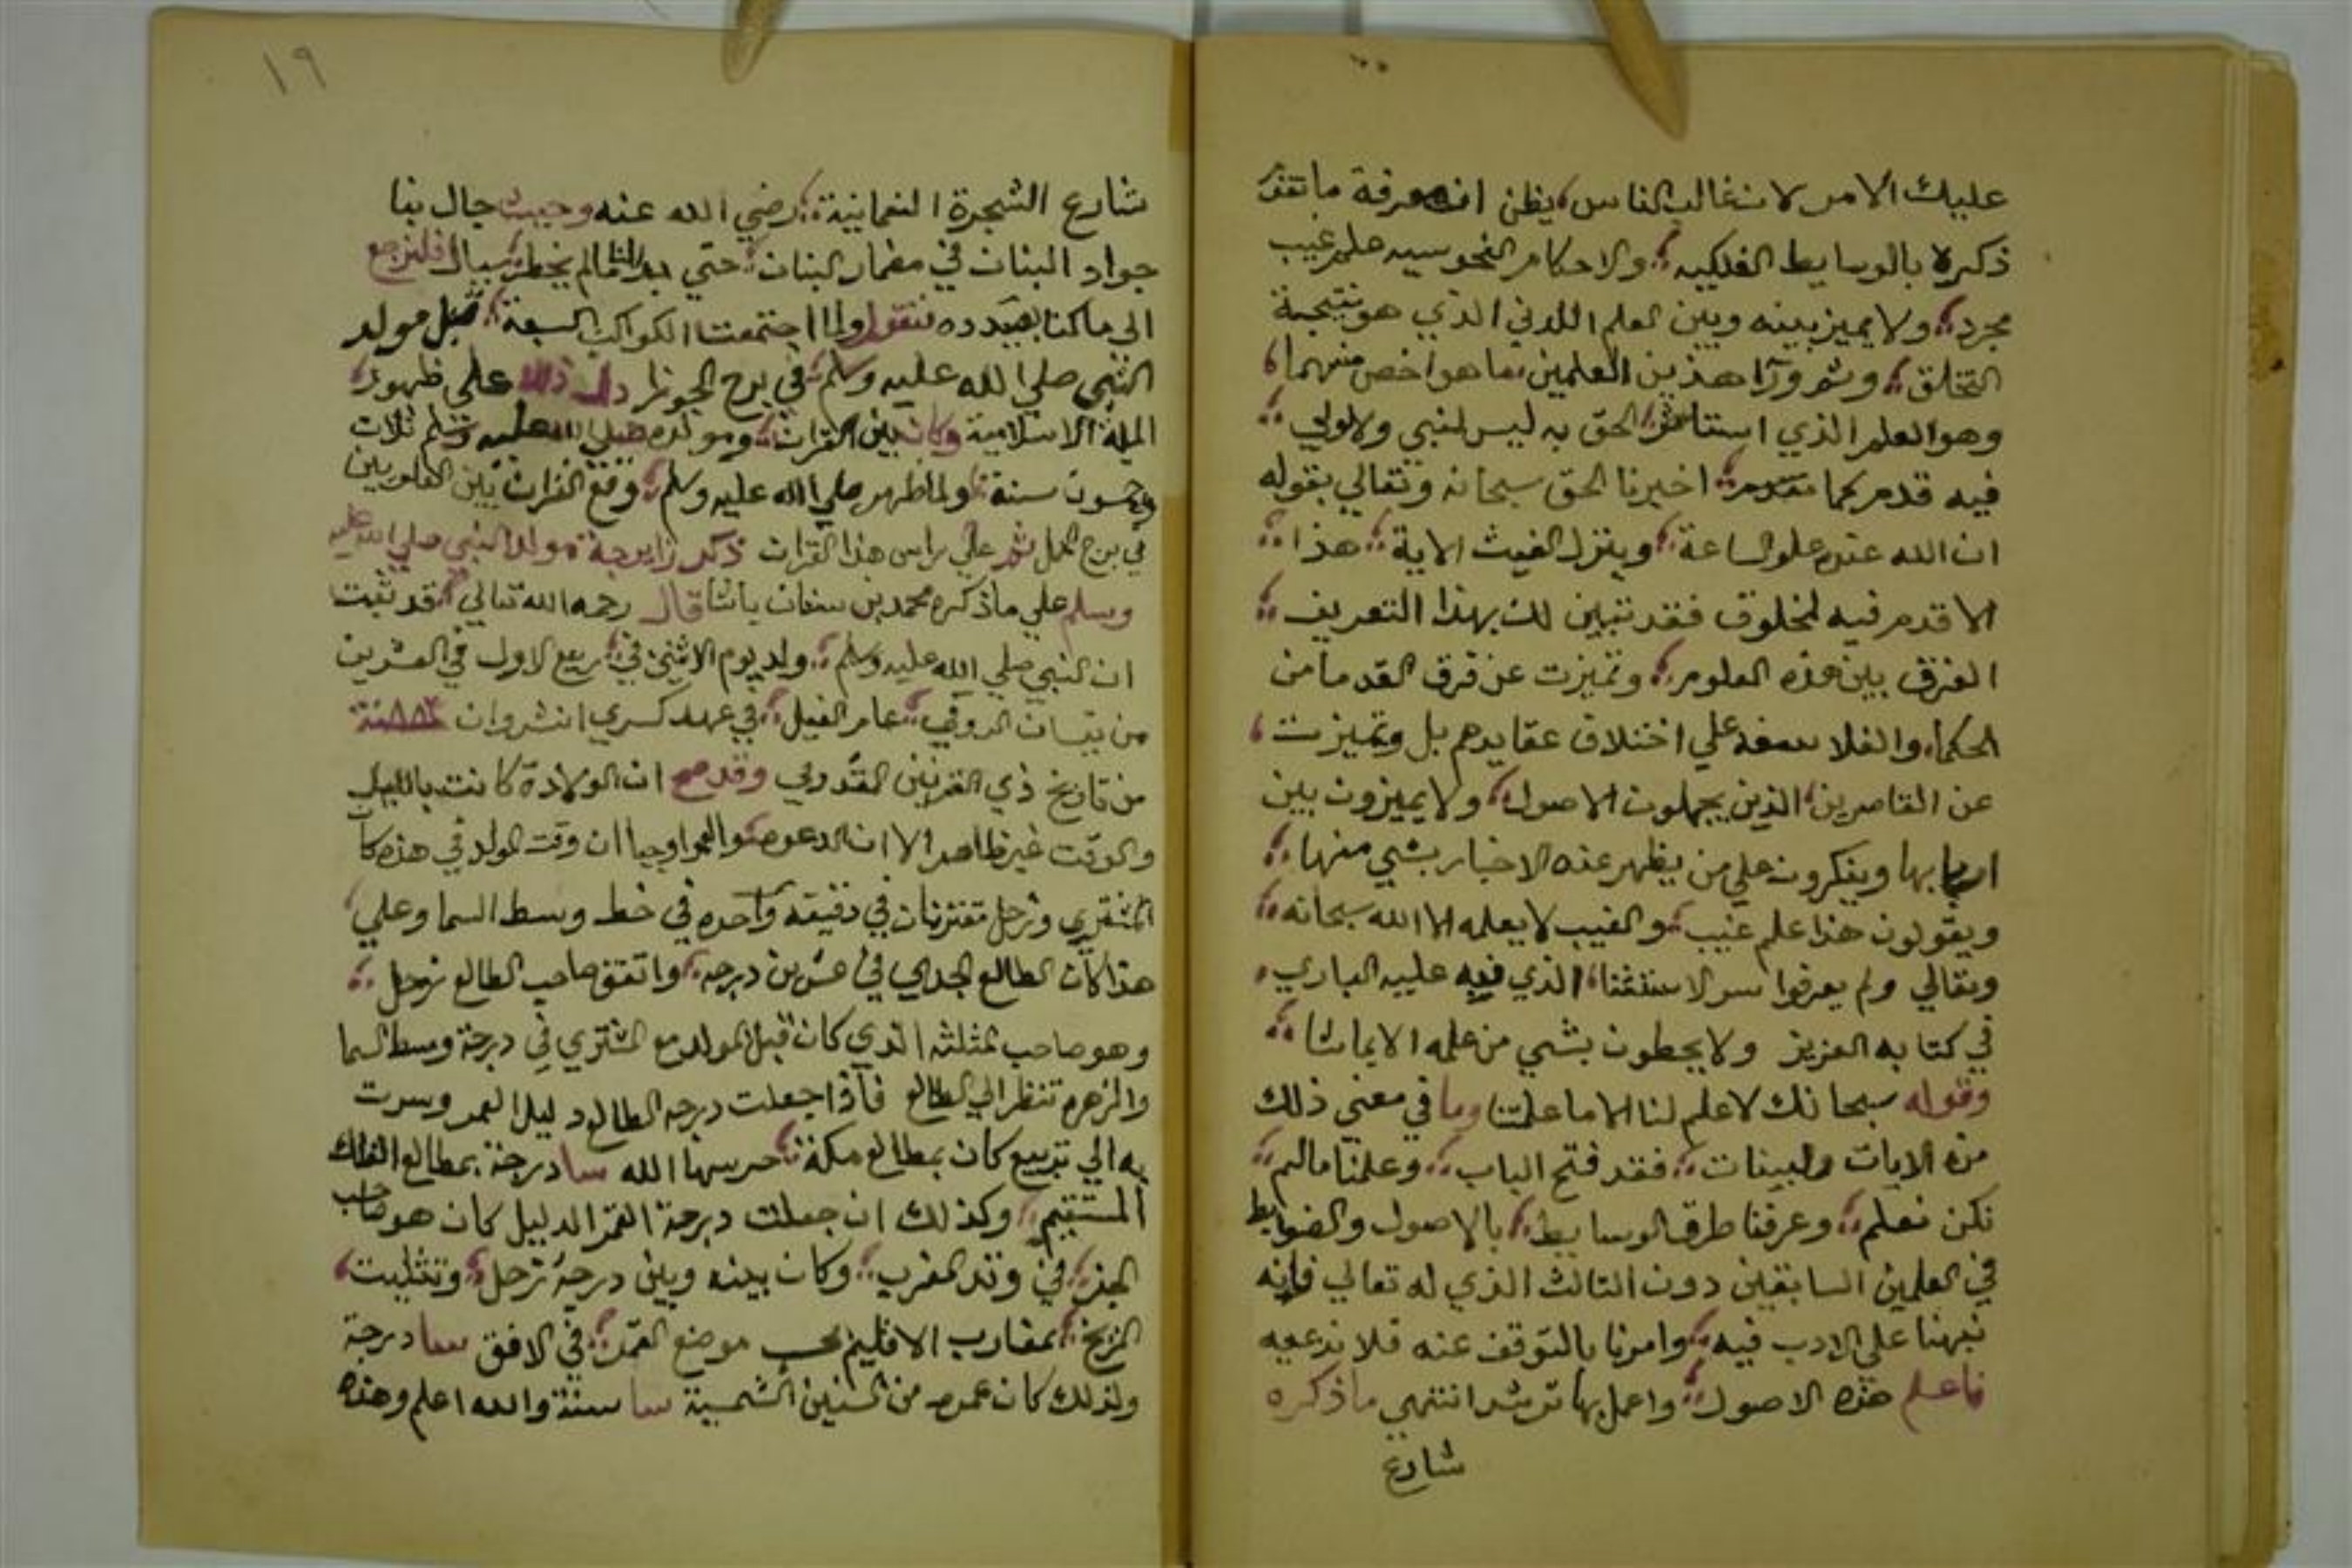 عليك الامر لان غالب الناس يظن ان معرفة ما تقدم
ذكره بالوسايط الفلكيه والاحكام النجوميه علم غيب
مجرد ولا يميز بينه وبين العلم اللدني الذي هو نتيجة
التخلق وثم ورآ هذين العلمين ما هو اخص منهما
وهو العلم الذي استاثر الحق به ليس لنبي ولا ولي
فيه قدم كما تقدم اخبرنا الحق سبحانه وتعالي بقوله
ان الله عنده علم الساعة وينزل الغيث الاية هذا
لا قدم فيه لمخلوق فقد تبين لك بهذا التعريف
الفرق بين هذه العلوم وتميزت عن فرق القدما من
الحكما والفلاسفه علي اختلاف عقايدهم بل وتميزت
عن القاصرين الذين يجهلون الاصول ولا يميزون بين
اربابها وينكرون علي من يظهر عنه الاخبار بشي منها
ويقولون هذا علم غيب والغيب لا يعلمه الا الله سبحانه
وتعالي ولم يعرفوا سر الاستثنا الذي نبه عليه الباري
في كتابه العزيز ولا يحيطون بشي من علمه الا بما شا
وقوله سبحانك لا علم لنا الا ما علمتنا وما في معني ذلك
من الايات والبينات فقد فتح الباب وعلمنا مالم
نكن نعلم وعرفنا طرق الوسايط بالاصول والضوابط
في العلمين السابقين دون الثالث الذي له تعالي فانه
نبهنا علي الادب فيه وامرنا بالتوقف عنه فلا ندعيه
فاعلم هذه الاصول واعمل بها ترشد انتهي ما ذكره
شارع
١٩
شارع الشجرة النعمانية رضي الله عنه وحيث جال بنا
جواد البنان في مضمار البنان حتي بدا لنا مالم يخطر ببال فلنرجع
الي ما كنا بصدده فنقول ولما اجتمعت الكواكب السبعة قبل مولد
النبي صلي الله عليه وسلم في برج الجوزا دل ذلك علي ظهور
الملة الاسلامية وكان بين القران ومولده صلي الله عليه وسلم ثلاث
وخمسون سنة ولما ظهر صلي الله عليه وسلم وقع القران بين العلويين
في برج الحمل ثم علي راس هذا القران ذكر زايرجة مولد النبي صلي الله عليه
وسلم علي ما ذكره محمد بن سنان باشا قال رحمه الله تعالي قد ثبت
ان النبي صلي الله عليه وسلم ولد يوم الاثنين في ربيع الاول في العشرين
من نيسان الرومي عام الفيل في عهد كسري انشروان ٨٨٢ سنة
من تاريخ ذي القرنين المقدوني وقد صح ان الولادة كانت بالليل
والوقت غير ظاهر الا ان اوجبا ان وقت المولد في هذه كان
المشتري وزحل مقترنان في دقيقه واحده في خط وسط السما وعلي
هذا كان الطالع الجدي في عشرين درجه واتفق صاحب الطالع زحل
وهو صاحب مثلثه الذي كان قبل المولد مع المشتري في درجة وسط السما
والزهره تنظر الي الطالع فاذا جعلت درجه الطالع دليل العمر وسرت
به الي تربيع كان بمطالع مكة حرسها الله سا درجة بمطالع الفلك
المستقيم وكذلك ان جعلت درجة القمر الدليل كان هو صاحب
الجزء في وتد المغرب وكان بينه وبين درجة زحل وتثليث
المريخ بمغارب الاقليم بحسب موضع القمر في الافق سا درجة
ولذلك كان عمره من السنين الشمسية سا سنة والله اعلم وهذه